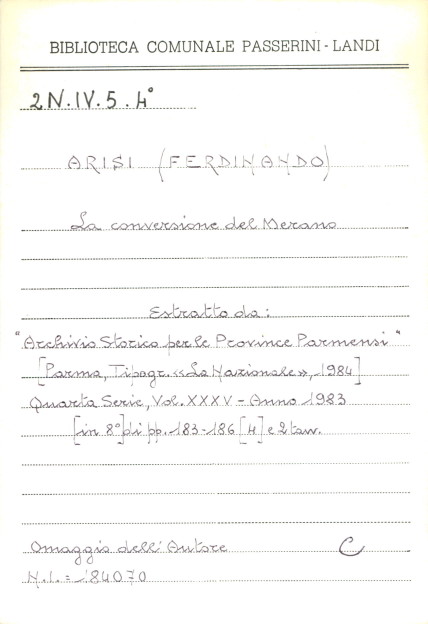 BIBLIOTECA COMUNALE PASSERINI - LANDI
2N.IV.5.4°
ARISI (FERDINANDO)
La conversione del Merano
Estratto da:
"Archivio Storico per le Province Parmensi"
[Parma, Tipogr. «La Nazionale», 1984]
Quarta Serie, Vol. XXXV - Anno 1983
[in 8° di pp. 183-186 [4] e 2 tav.
Omaggio dell'Autore C
N.I. = 184070